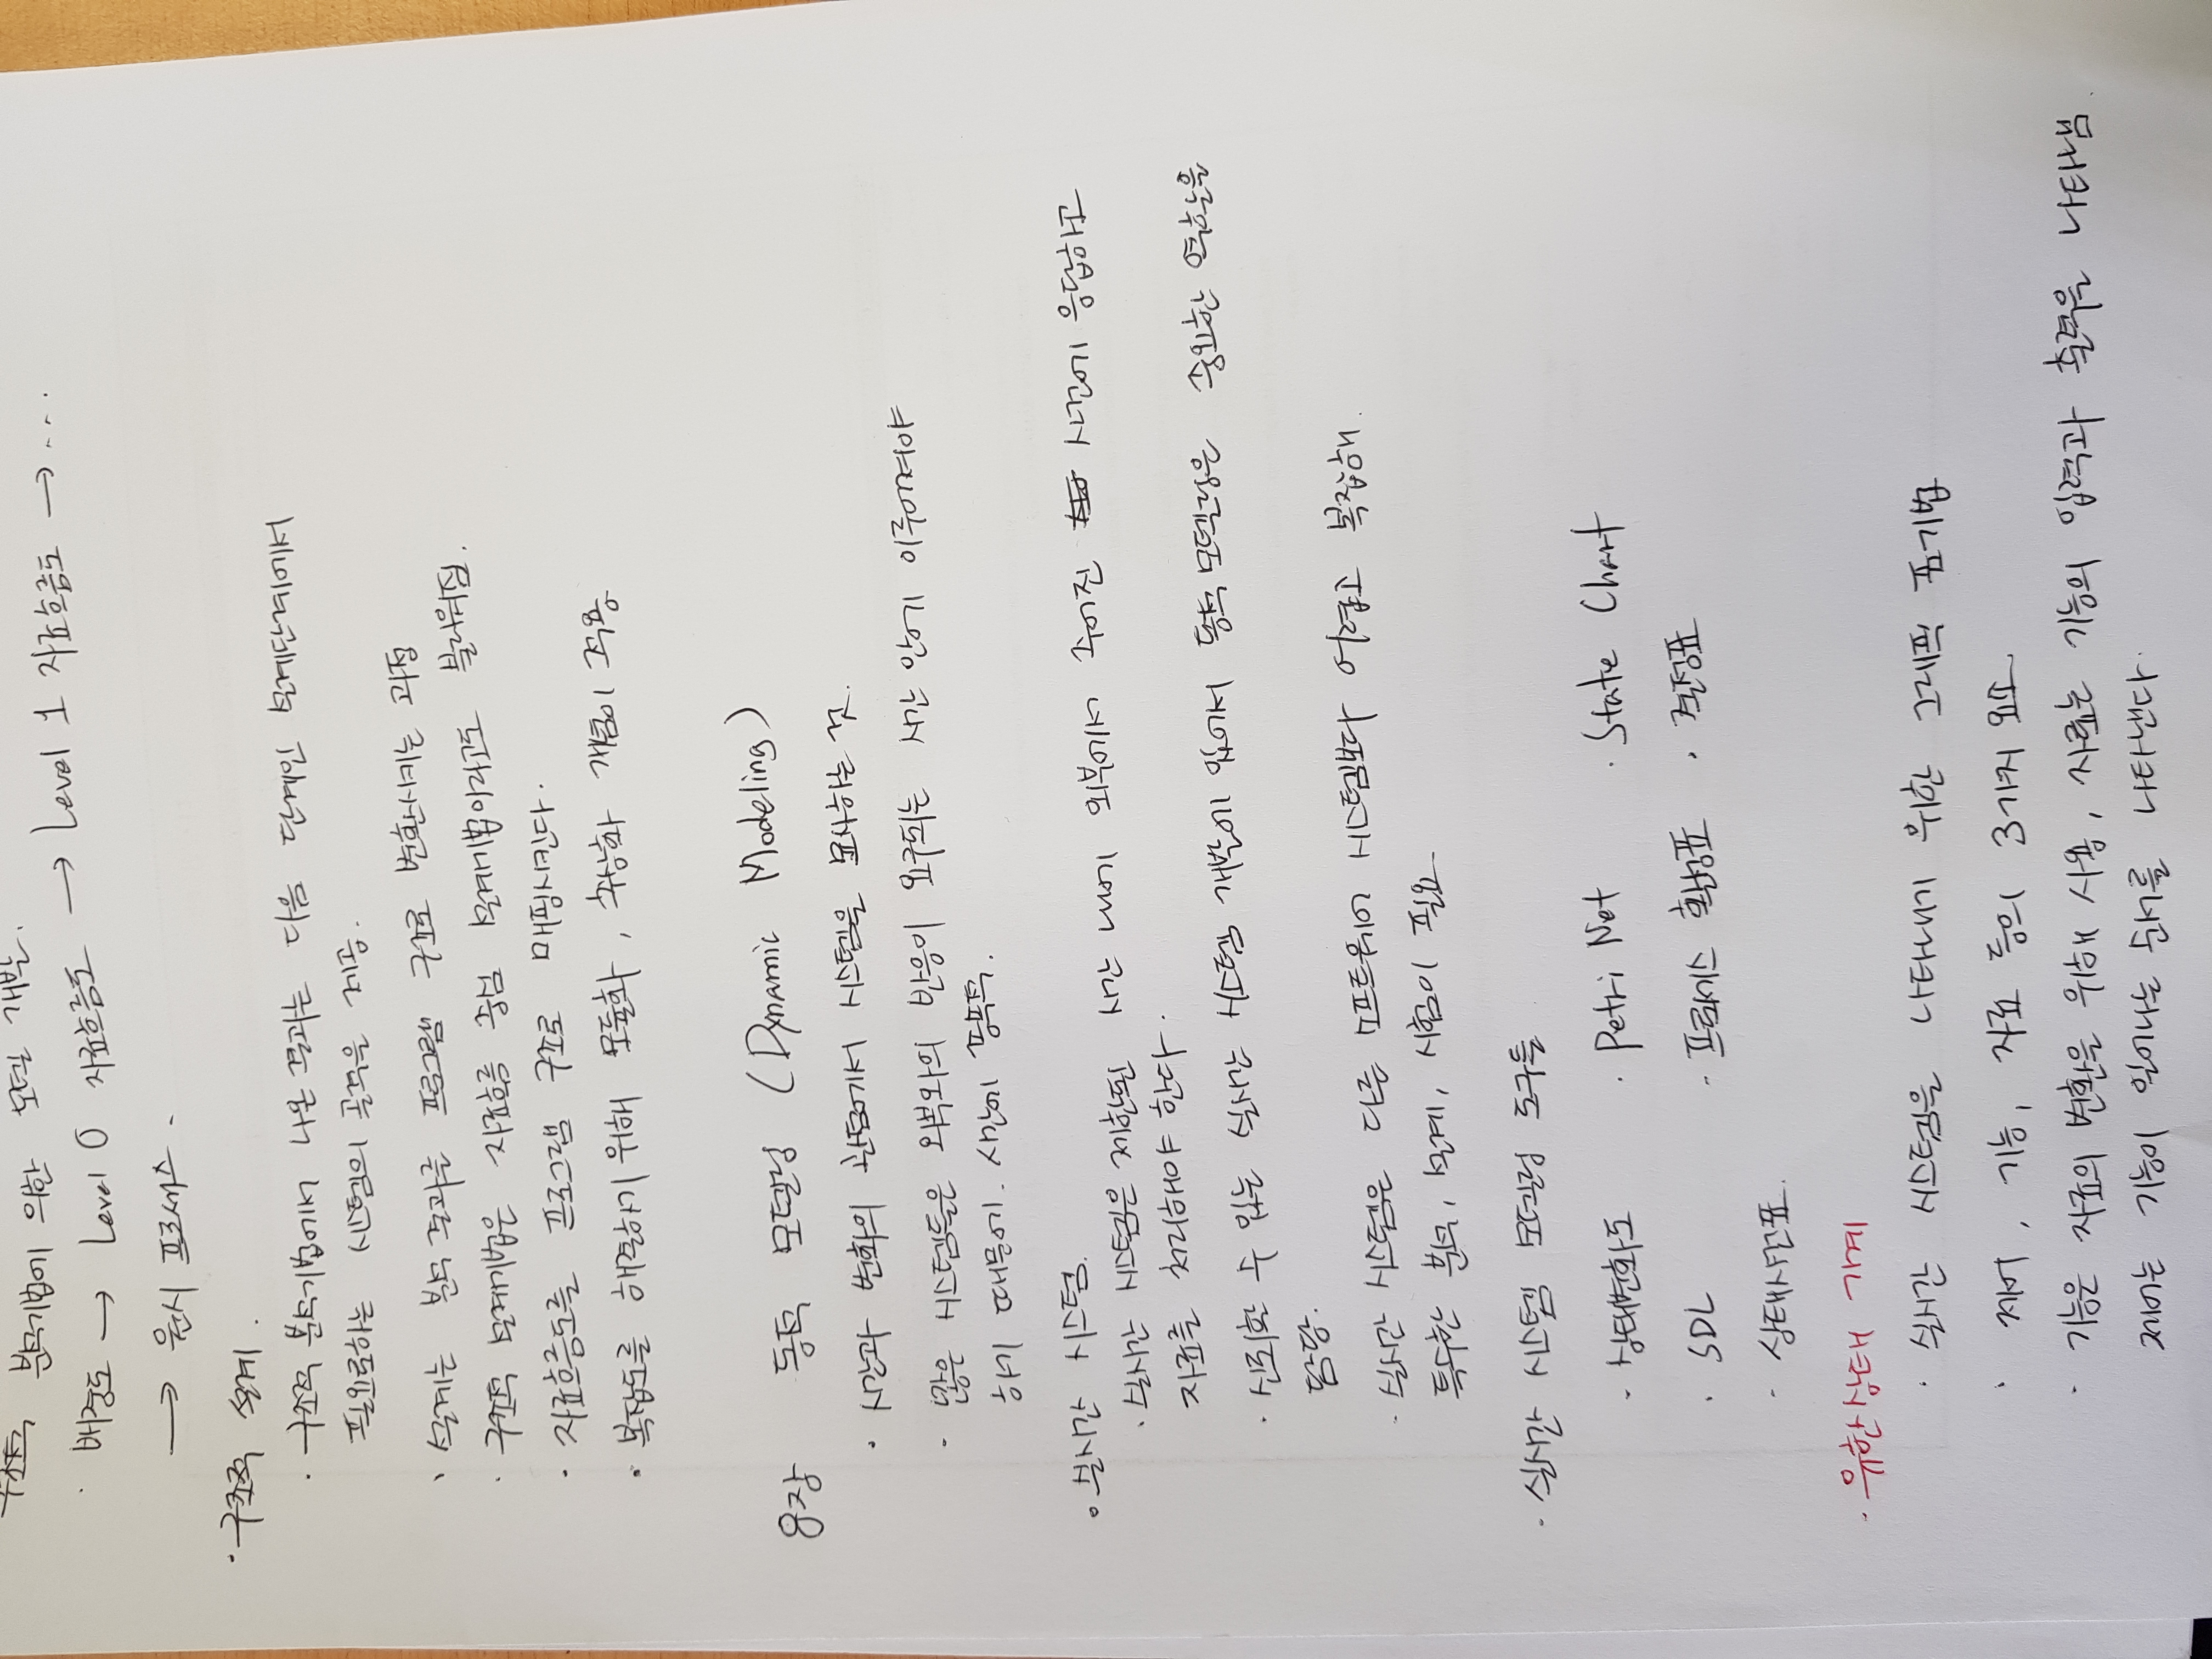 구조적 분석기법에 의한 모델 개발.
· 배경도 → Level 0 자료흐름도 → Level 1 자료흐름도 → ...
→ 원시 프로세스.
· 구조적 설계.
· 구조적 분석기법에서 나온 결과는 다음 단계인 설계단계에서
필요로하는 시스템의 골격을 제공.
· 설계는 분석 결과를 프로그램 구조로 변환시키는 과정
· 구조적 설계기법은 자료흐름 중심 설계기법이라고도 불리워짐.
· 자료흐름도를 프로그램 구조로 매핑시킨다.
· 복잡도를 해결하기 위해 모듈화, 추상화 개념이 적용
8장 동적 모델링 (Dynamic Modeling)
· 시간과 변화의 관점에서 시스템을 묘사하는 것.
· 많은 시스템들은 외부와의 반응이 요구되는 시간 안에 이루어져야
하기 때문에. 시간에 종속적.
· 실시간 시스템.
· 실시간 시스템은 제한된 시간 내에 외부에서 주어진 사건에 응답하고
자료를 처리해야 한다.
· 신뢰할 수 있는 실시간 시스템 개발에 있어서 동적 모델링은 중요한 역할을
담당.
· 실시간 시스템은 다른 소프트웨어 시스템보다 어렵고 복잡해.
특수한 분석, 설계, 시험이 필요
· 실시간 시스템 모델링 도구들
· 상태변화도 · Petri Net · State Chart
· SDL · 프로세스 활성표 · 결정표
· 상태사건표.
· 유한상태 기계
· 실시간 시스템을 나타내기 위한 그래픽 표기법
· 제어, 기능, 자료 등의 3가지 요소
· 기능은 자료의 변환을 위해 사용, 자료는 기능의 입력과 출력을 나타냄.
제어는 기능이 일어나는 순서를 나타낸다.